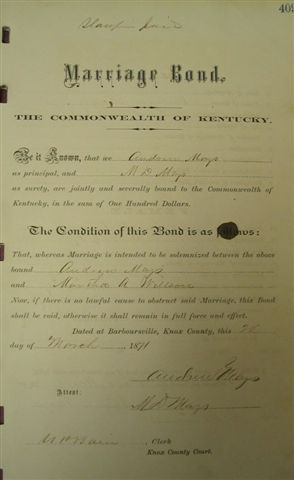 409
Marriage Bond.
THE COMMONWEALTH OF KENTUCKY.
Be it Known, that we Andrew Mays
as principal, and M D Mays
as surety, are jointly and severally bound to the Commonwealth of
Kentucky, in the sum of One Hundred Dollars.
The Condition of this Bond is as follows:
That, whereas Marriage is intended to be solemnized between the above
bound Andrew Mays
and Martha A Willson
Now, if there is no lawful cause to obstruct said Marriage, this Bond
shall be void, otherwise it shall remain in full force and effect.
Dated at Barboursville, Knox County, this
day of March 1871
Andrew Mays
Attest: M D Mays
Clerk
Knox County Court.